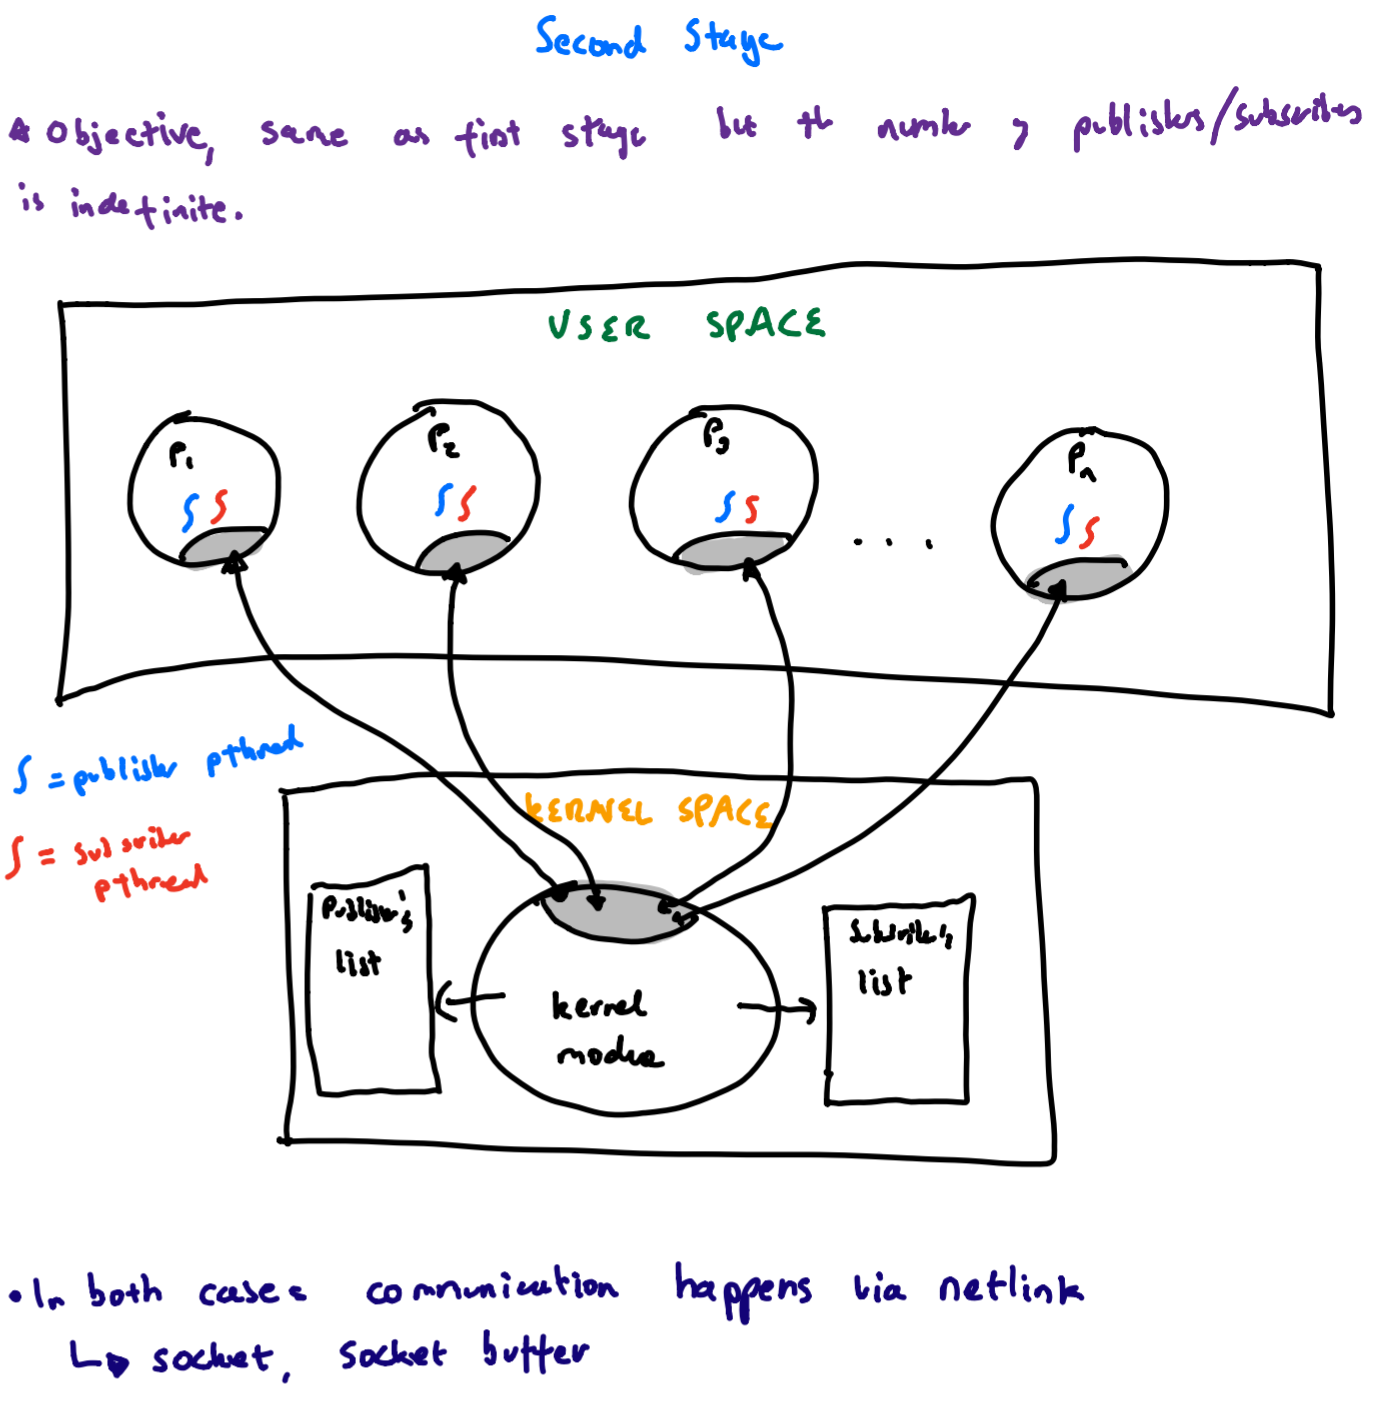 Second Stage
Objective, same as first stage but the number of publishers/subscribers
is indefinite.
USER SPACE
P1 P2 P3 ... Pn
= publisher pthread
= subscriber
pthread
KERNEL SPACE
Publisher's
list
kernel
module
Subscriber's
list
• In both cases communication happens via netlink
↳ socket, socket buffer